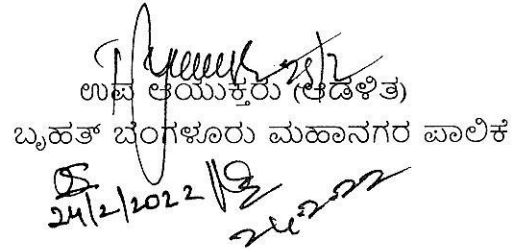 ಉಪ ಆಯುಕ್ತರು (ಆಡಳಿತ)
ಬೃಹತ್ ಬೆಂಗಳೂರು ಮಹಾನಗರ ಪಾಲಿಕೆ
24/2/2022
24.2.22